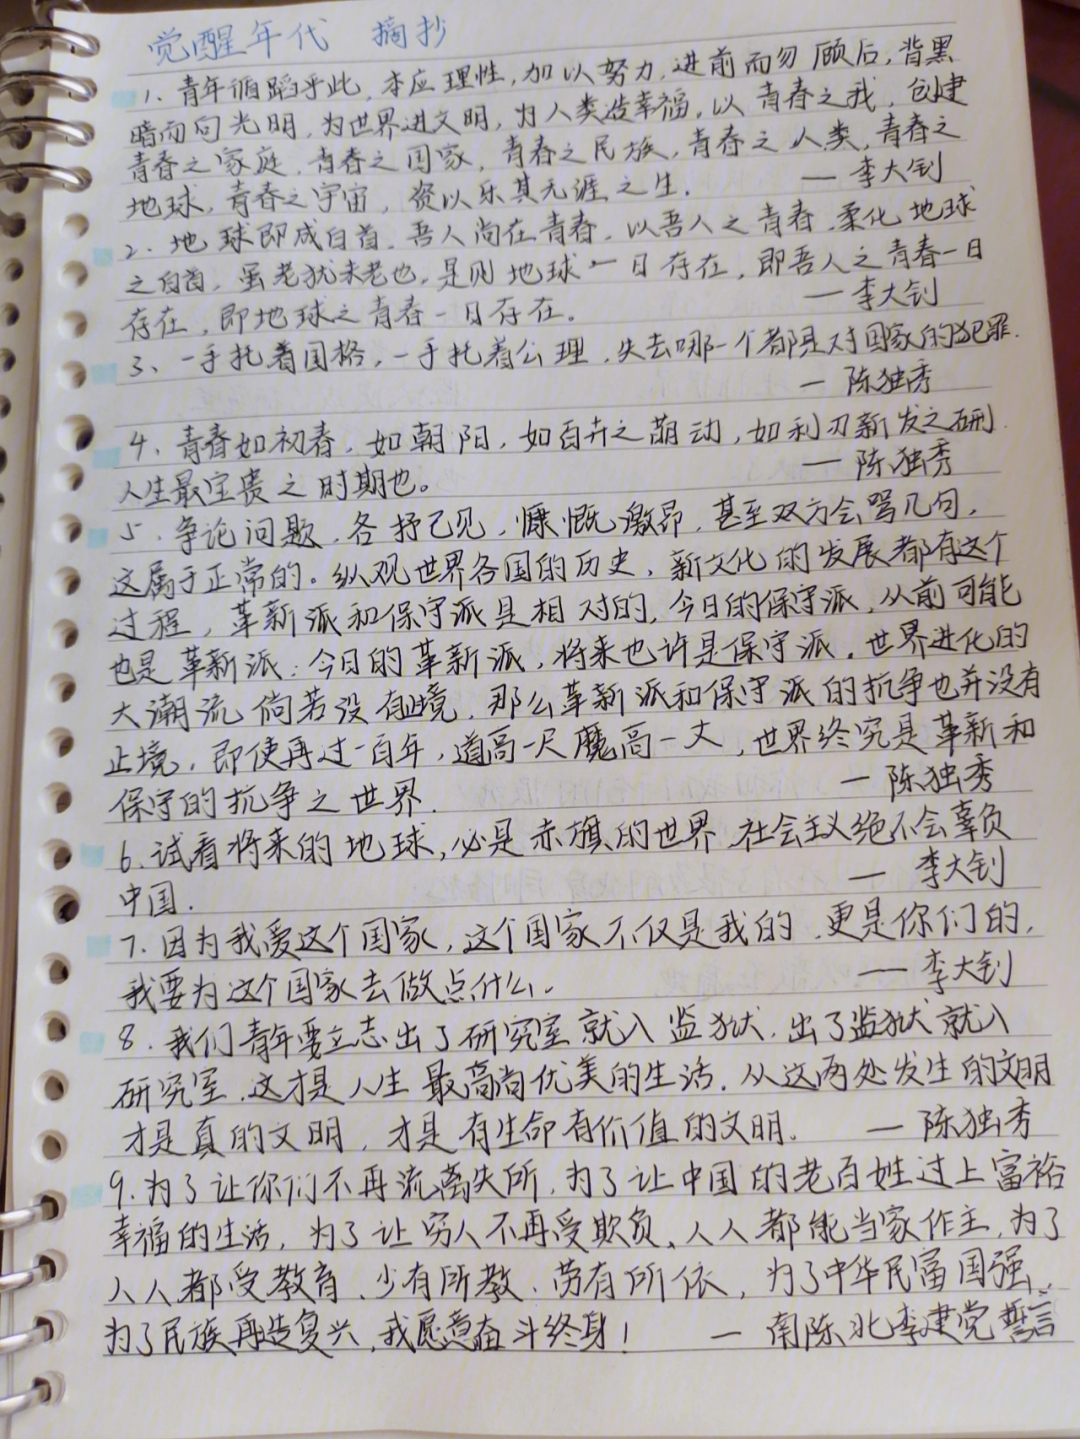 觉醒年代 摘抄
1、青年循蹈乎此，本应理性，加以努力，进前而勿顾后，背黑
暗而向光明，为世界进文明，为人类造幸福，以青春之我，创建
青春之家庭，青春之国家，青春之民族，青春之人类，青春之
地球，青春之宇宙，资以乐其无涯之生. — 李大钊
2、地球即成白首，吾人尚在青春，以吾人之青春，柔化地球
之白首，虽老犹未老也，是则地球一日存在，即吾人之青春一日
存在，即地球之青春一日存在。 — 李大钊
3、一手托着国格，一手托着公理，失去哪一个都是对国家的犯罪.
— 陈独秀
4、青春如初春，如朝阳，如百卉之萌动，如利刃新发之硎
人生最宝贵之时期也。 — 陈独秀
5、争论问题，各抒己见，慷慨激昂，甚至双方会骂几句，
这属于正常的。纵观世界各国的历史，新文化的发展都有这个
过程，革新派和保守派是相对的，今日的保守派，从前可能
也是革新派；今日的革新派，将来也许是保守派，世界进化的
大潮流倘若没有止境，那么革新派和保守派的抗争也并没有
止境，即使再过一百年，道高一尺魔高一丈，世界终究是革新和
保守的抗争之世界. — 陈独秀
6、试看将来的地球，必是赤旗的世界，社会主义绝不会辜负
中国. — 李大钊
7、因为我爱这个国家，这个国家不仅是我的，更是你们的，
我要为这个国家去做点什么. — 李大钊
8、我们青年要立志出了研究室就入监狱，出了监狱就入
研究室，这才是人生最高尚优美的生活，从这两处发生的文明
才是真的文明，才是有生命有价值的文明。 — 陈独秀
9、为了让你们不再流离失所，为了让中国的老百姓过上富裕
幸福的生活，为了让穷人不再受欺负，人人都能当家作主，为了
人人都受教育、少有所教、劳有所依，为了中华民富国强，
为了民族再造复兴，我愿意奋斗终身！ — 南陈北李建党誓言